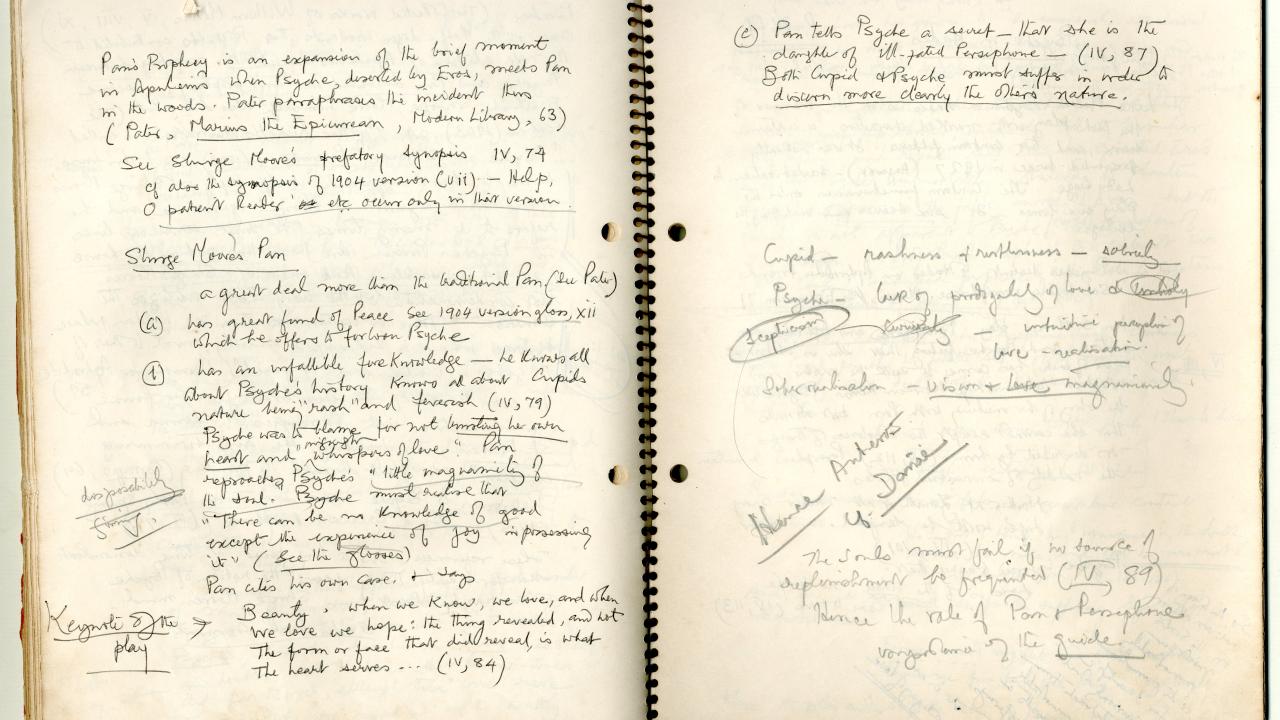 Pan's Prophecy is an expansion of the brief moment
in Apuleius when Psyche, deserted by Eros, meets Pan
in the woods. Pater paraphrases the incident thus
(Pater, Marius the Epicurean, Modern Library, 63)
See Sturge Moore's prefatory synopsis IV, 74
cf also the synopsis of 1904 version (vii) — Help,
O patient Reader etc occur only in that version.
Sturge Moore's Pan
a great deal more than the traditional Pan (see Pater)
(a) has great fund of Peace See 1904 version gloss, xii
which he offers to forlorn Psyche
has an infallible foreKnowledge — he Knows all
about Psyche's history Knows all about Cupid's
nature being "rash" and feverish (IV, 79)
Psyche was to blame for not trusting her own
heart and "whispers of love". Pan
reproaches Psyche's "little magnanimity of
the soul. Psyche must realise that
"There can be no Knowledge of good
except the experience of joy in possessing
it" (See the glosses)
Pan cites his own case, & says
Keynote of the
play
Beauty, when we Know, we love, and when
We love we hope: the thing revealed, and not
The form or face that did reveal, is what
The heart serves ... (IV, 84)
(c) Pan tells Psyche a secret — that she is the
daughter of ill-fated Persephone — (IV, 87)
Both Cupid & Psyche must suffer in order to
discern more clearly the other's nature.
Cupid — rashness & ruthlessness —
Psyche — lack of prodigality of love
Scepticism — intuitive perception of
love — realisation.
— vision & Love magnanimity
Anteros
cf. Danae
Hence
The Souls must fail if no source of
replenishment be frequented (IV, 89)
Hence the role of Pan & Persephone
importance of the guide.